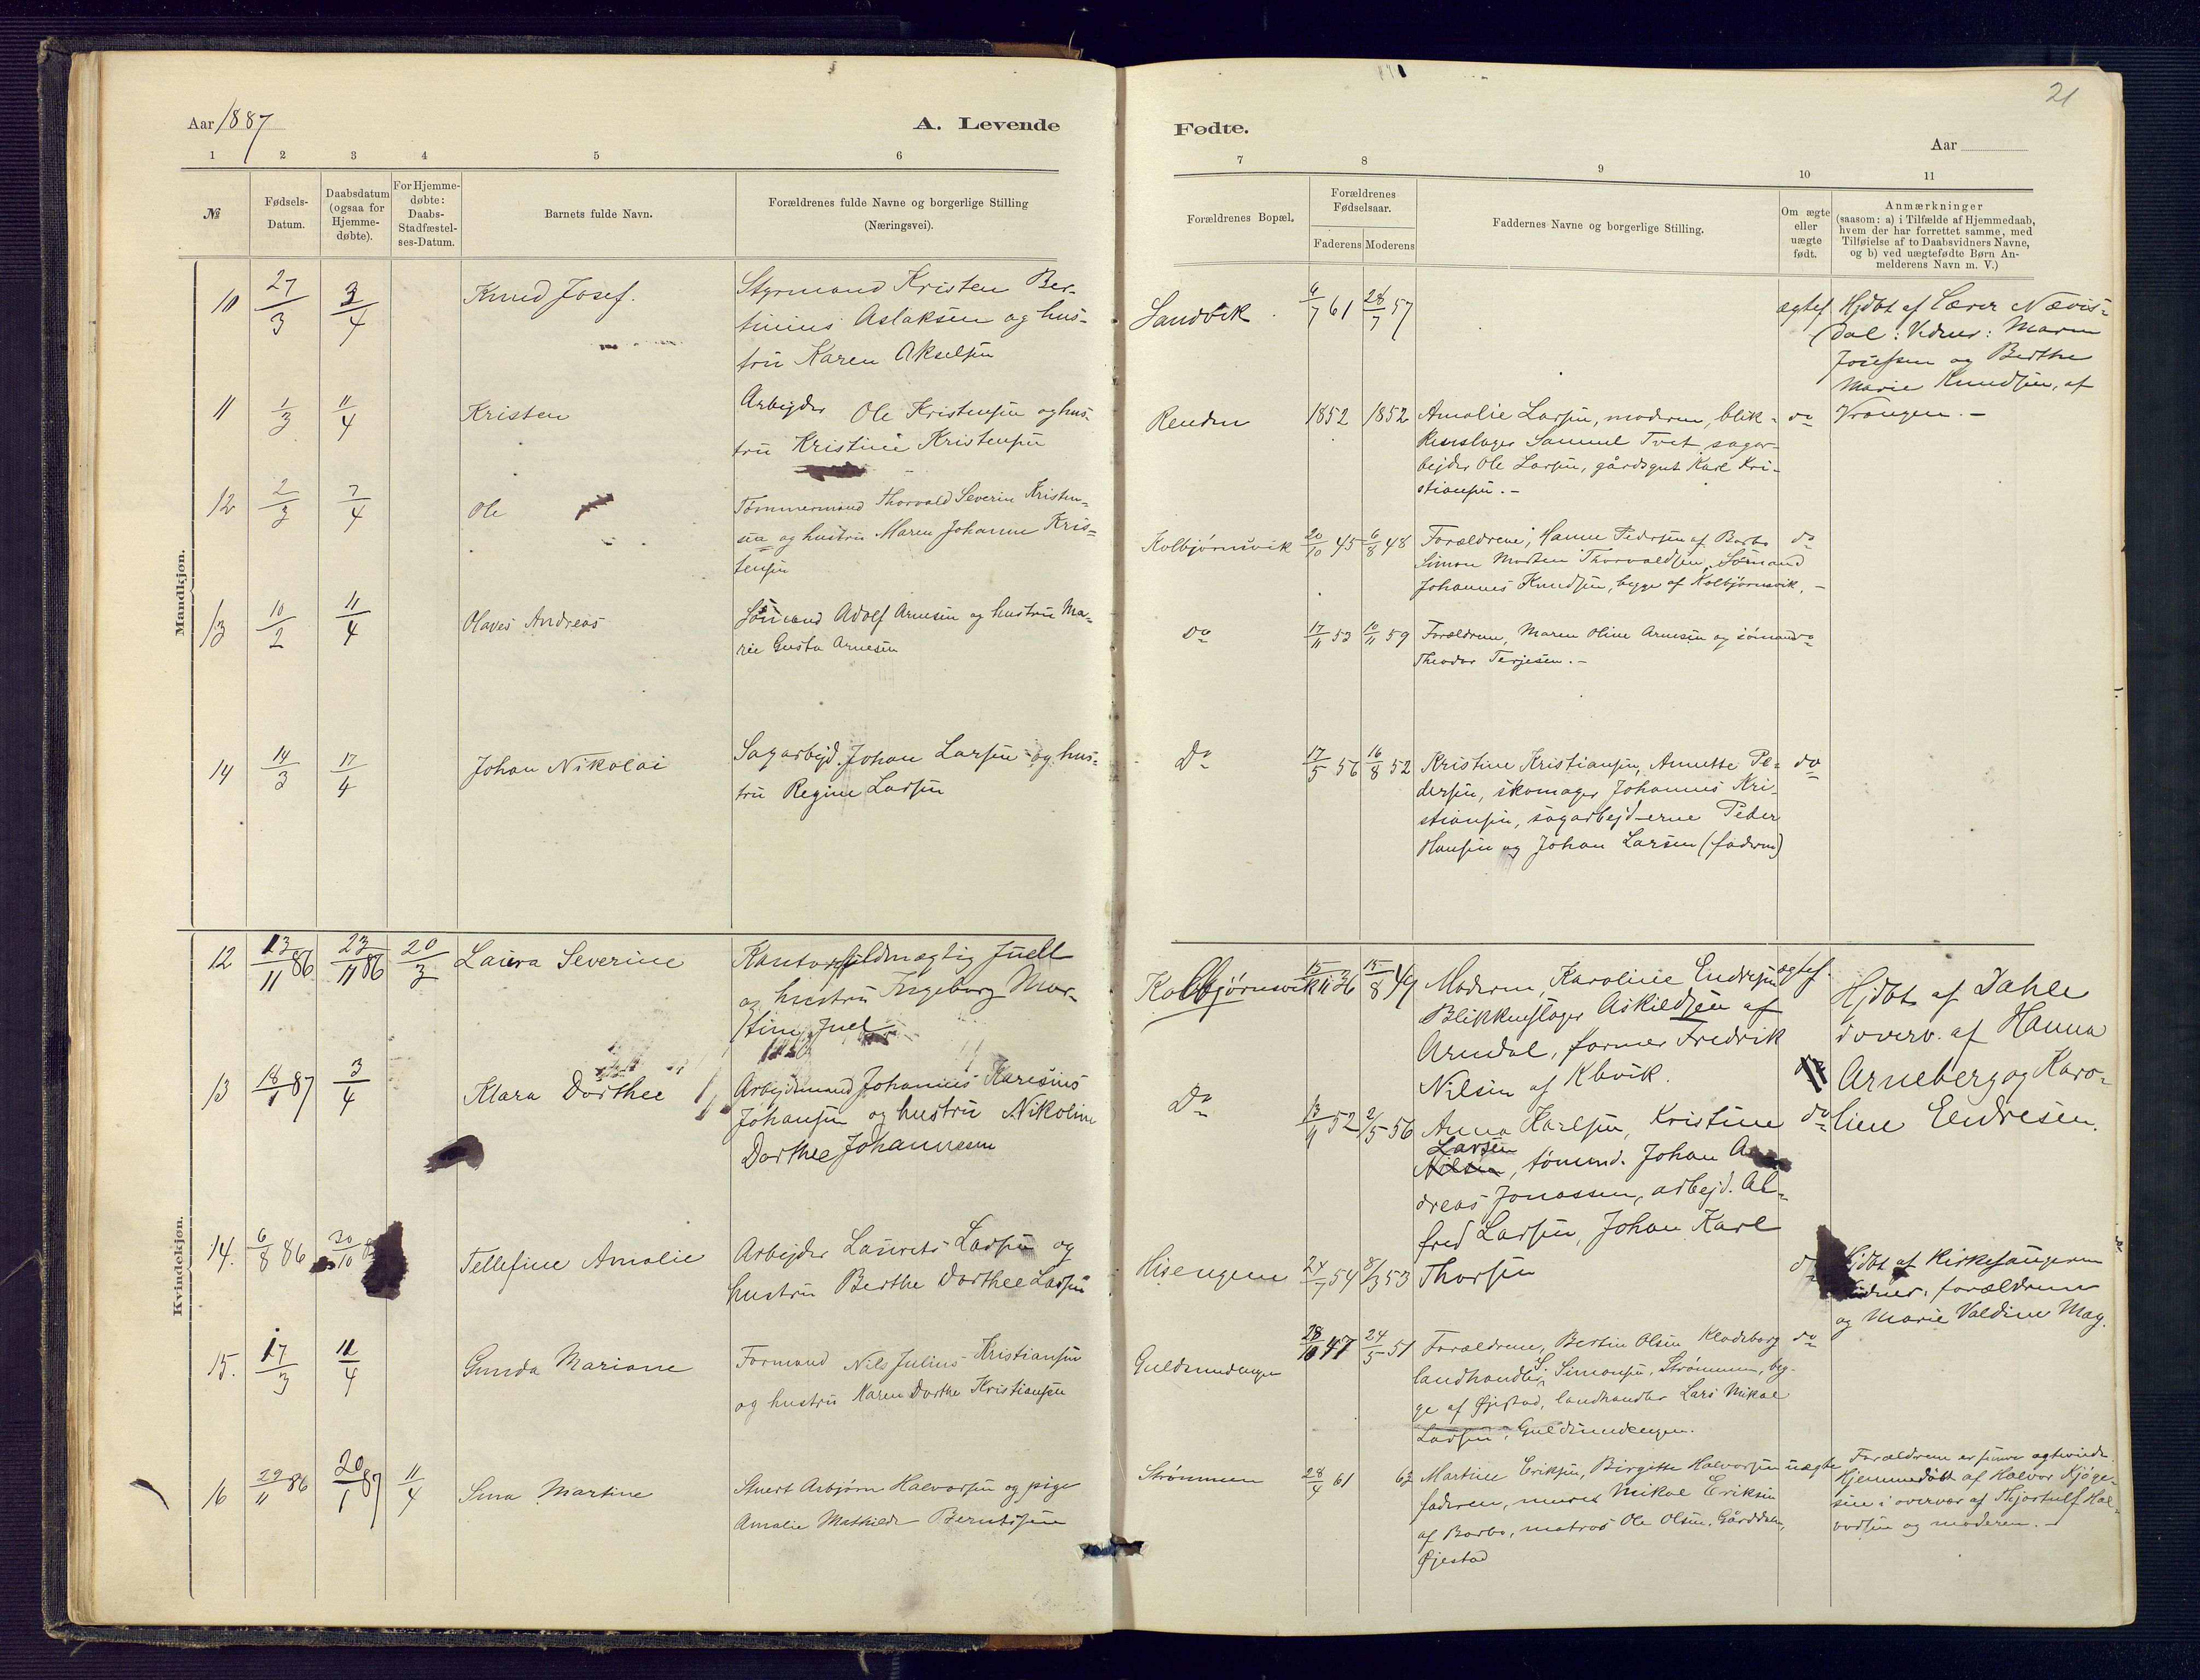 Aar 1887
A. Levende
1 2 3 4 5 6
№
Fødsels-
Datum.
Daabsdatum
(ogsaa for
Hjemme-
døbte).
For Hjemme-
døbte:
Daabs-
Stadfæstel-
ses-Datum.
Barnets fulde Navn.
Forældrenes fulde Navne og borgerlige Stilling
(Næringsvei).
Mandkjøn.
10 27/3 3/4 Knud Josef.
Styrmand Kristen Ber-
tinius Aslaksen og hus-
tru Karen Akselsen
11 1/3 11/4 Kristen
Arbejder Ole Kristensen og hus-
tru Kristine Kristensen
12 2/3 7/4 Ole
Tømmermand Thorvald Severin Kristen-
sen og hustru Maren Johanne Kris-
tensen
13 10/2 11/4 Olaves Andreas
Sømand Adolf Arnesen og hustru Ma-
rie Gusta Arnesen
14 14/3 17/4 Johan Nikolai
Sagarbejd. Johan Larsen og hus-
tru Regine Larsen
Kvindekjøn.
12 13/11 86 23/11 86 20/3 Laura Severine
Kontorfuldmægtig Juell
og hustru Ingeborg Mar-
tine Juel
13 18/1 87 3/4 Klara Dorthee
Arbejdsmand Johannes Karesius
Johansen og hustru Nikoline
Dorthee Johannessen
14. 6/8 86 30/10 Tellefine Amalie
Arbejder Laurits Larsen og
hustru Berthe Dorthee Larsen
15. 17/3 11/4 Gunda Mariane
Formand Nils Julius Kristiansen
og hustru Karen Dorthe Kristiansen
16 29/11 86 20/1 87 11/4 Sina Martine
Stuert Asbjørn Halvorsen og pige
Amalie Mathilde Berntsen
21
Fødte.
Aar
7 8 9 10 11
Forældrenes Bopæl.
Forældrenes
Fødselsaar.
Faderens Moderens
Faddernes Navne og borgerlige Stilling.
Om ægte
eller
uægte
født.
Anmærkninger
(saasom: a) i Tilfælde af Hjemmedaab,
hvem der har forrettet samme, med
Tilføielse af to Daabsvidners Navne,
og b) ved uægtefødte Børn An-
melderens Navn m. V.)
Sandvik 6/7 61 28/7 57 ægtef. Hjdbt af Lærer Nævis-
dal: Vidner: Maren
Josefsen og Berthe
Marie Knudsen, af
Vrangen. -
Renden 1852 1852 Amalie Larsen, moderen, blik- do
kenslager Samuel Tvet, sagar-
bejder Ole Larsen, gårdsgut Karl Kri-
stiansen. -
Kolbjørnsvik 20/10 45 6/8 48 Forældrene, Hanne Pedersen af Barbo do
Simon Morten Thorvaldsen, Sømand
Johannes Knudsen, begge af Kolbjørnsvik. -
Do 17/11 53 10/11 59 Forældrene, Maren Oline Arnesen og sømand do
Theodor Terjesen. -
Do 17/5 56 16/8 52 Kristine Kristiansen, Annette Pe- do
dersen, skomager Johannes Kri-
stiansen, sagarbejderne Peder
Hansen og Johan Larsen (faderen)
Kolbjørnsvik 15/11 36 15/8 49 Moderen, Karoline Endresen ægtef.
Blikkenslager Askildsen af
Arendal, former Fredrik
Nilsen af Kbvik.
Hjdbt af Dahle
i overv. af Hanna
Arneberg og Karo-
line Endresen.
Do 13/9 52 2/5 56 Anna Karlsen, Kristine do
Larsen
Nilsen, tømmd. Johan An
dreas Jonassen, arbejd. Al-
fred Larsen, Johan Karl
Thorsen
Hisengen 24/7 54 8/3 53 do
Hjdbt af Kirkesangeren
Vidner: forældrene
og Marie Valdine Mag.
Guldsmedengen 28/10 47 24/5 51 Forældrene, Bertin Olsen Klodeborg do
landhandler S. Simonsen, Strømmen, beg-
ge af Øjestad, landhandler Lars Mikal
Larsen, Guldsmedengen.
Strømmen 28/4 61 62 Martine Eriksen, Birgitte Halvorsen uægte
faderen, murer Mikal Eriksen
af Barbo, matros Ole Olsen, Gårddalen,
Øjestad
Forældrene er senere ægteviede
Hjemmedøbt af Halvor Kjøge-
sen i overvær af Thjostulf Hal-
vorsen og moderen. -